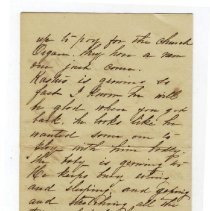 up to pay for the church
Organ. they have a new
one now
is growing so
fast I know he will
be glad when you get
back. he looks like he
wanted some one to
play with him
the baby is growing
He keeps busy eating
and sleeping, and
and stretching all the